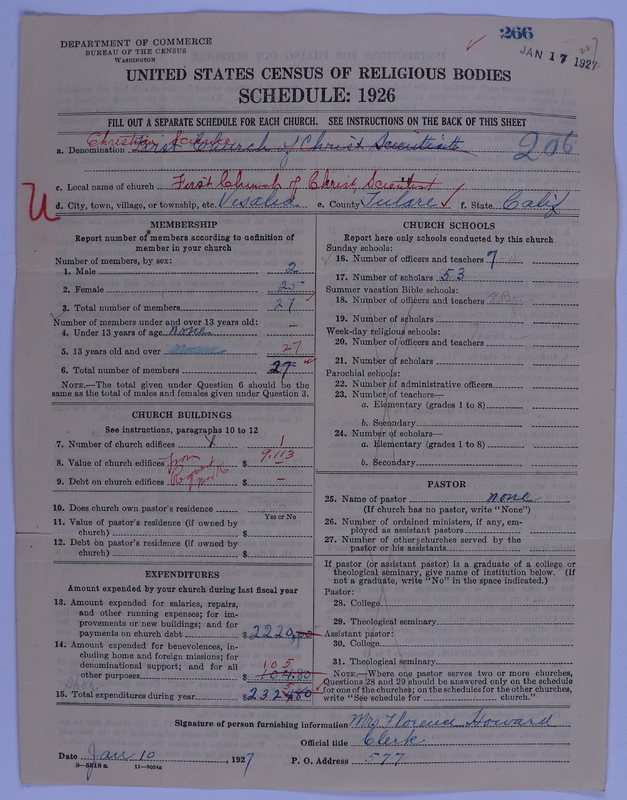 266
JAN 17 1927
DEPARTMENT OF COMMERCE
BUREAU OF THE CENSUS
WASHINGTON
UNITED STATES CENSUS OF RELIGIOUS BODIES
SCHEDULE: 1926
FILL OUT A SEPARATE SCHEDULE FOR EACH CHURCH. SEE INSTRUCTIONS ON THE BACK OF THIS SHEET
Christian Science
a. Denomination First Church of Christ Scientist 206
c. Local name of church First Church of Christ, Scientist
U
d. City, town, village, or township, etc. Visalia e. County Tulare f. State Calif
MEMBERSHIP
Report number of members according to definition of
member in your church
Number of members, by sex:
1. Male 2
2. Female 25
3. Total number of members 27
Number of members under and over 13 years old:
4. Under 13 years of age none –
5. 13 years old and over 27
6. Total number of members 27
NOTE.—The total given under Question 6 should be the
same as the total of males and females given under Question 3.
CHURCH BUILDINGS
See instructions, paragraphs 10 to 12
7. Number of church edifices 1 1
8. Value of church edifices from $ 9,113
9. Debt on church edifices $ –
10. Does church own pastor's residence
Yes or No
11. Value of pastor's residence (if owned by
church) $
12. Debt on pastor's residence (if owned by
church) $
EXPENDITURES
Amount expended by your church during last fiscal year
13. Amount expended for salaries, repairs,
and other running expenses; for im-
provements or new buildings; and for
payments on church debt $ 2220.00
14. Amount expended for benevolences, in-
cluding home and foreign missions; for
denominational support; and for all
other purposes $ 105
104.80
15. Total expenditures during year $ 2324.80
5
CHURCH SCHOOLS
Report here only schools conducted by this church
Sunday schools:
16. Number of officers and teachers 7
17. Number of scholars 53
Summer vacation Bible schools:
18. Number of officers and teachers
19. Number of scholars
Week-day religious schools:
20. Number of officers and teachers
21. Number of scholars
Parochial schools:
22. Number of administrative officers
23. Number of teachers—
a. Elementary (grades 1 to 8)
b. Secondary
24. Number of scholars—
a. Elementary (grades 1 to 8)
b. Secondary
PASTOR
25. Name of pastor none
(If church has no pastor, write "None")
26. Number of ordained ministers, if any, em-
ployed as assistant pastors
27. Number of other churches served by the
pastor or his assistants
If pastor (or assistant pastor) is a graduate of a college or
theological seminary, give name of institution below. (If
not a graduate, write "No" in the space indicated.)
Pastor:
28. College
29. Theological seminary
Assistant pastor:
30. College
31. Theological seminary
NOTE.—Where one pastor serves two or more churches,
Questions 28 and 29 should be answered only on the schedule
for one of the churches; on the schedules for the other churches,
write "See schedule for church."
Signature of person furnishing information Mrs Florence Howard
Official title Clerk.
Date Jan 10, 1927 P. O. Address 577
8—5518 a 11—9054a